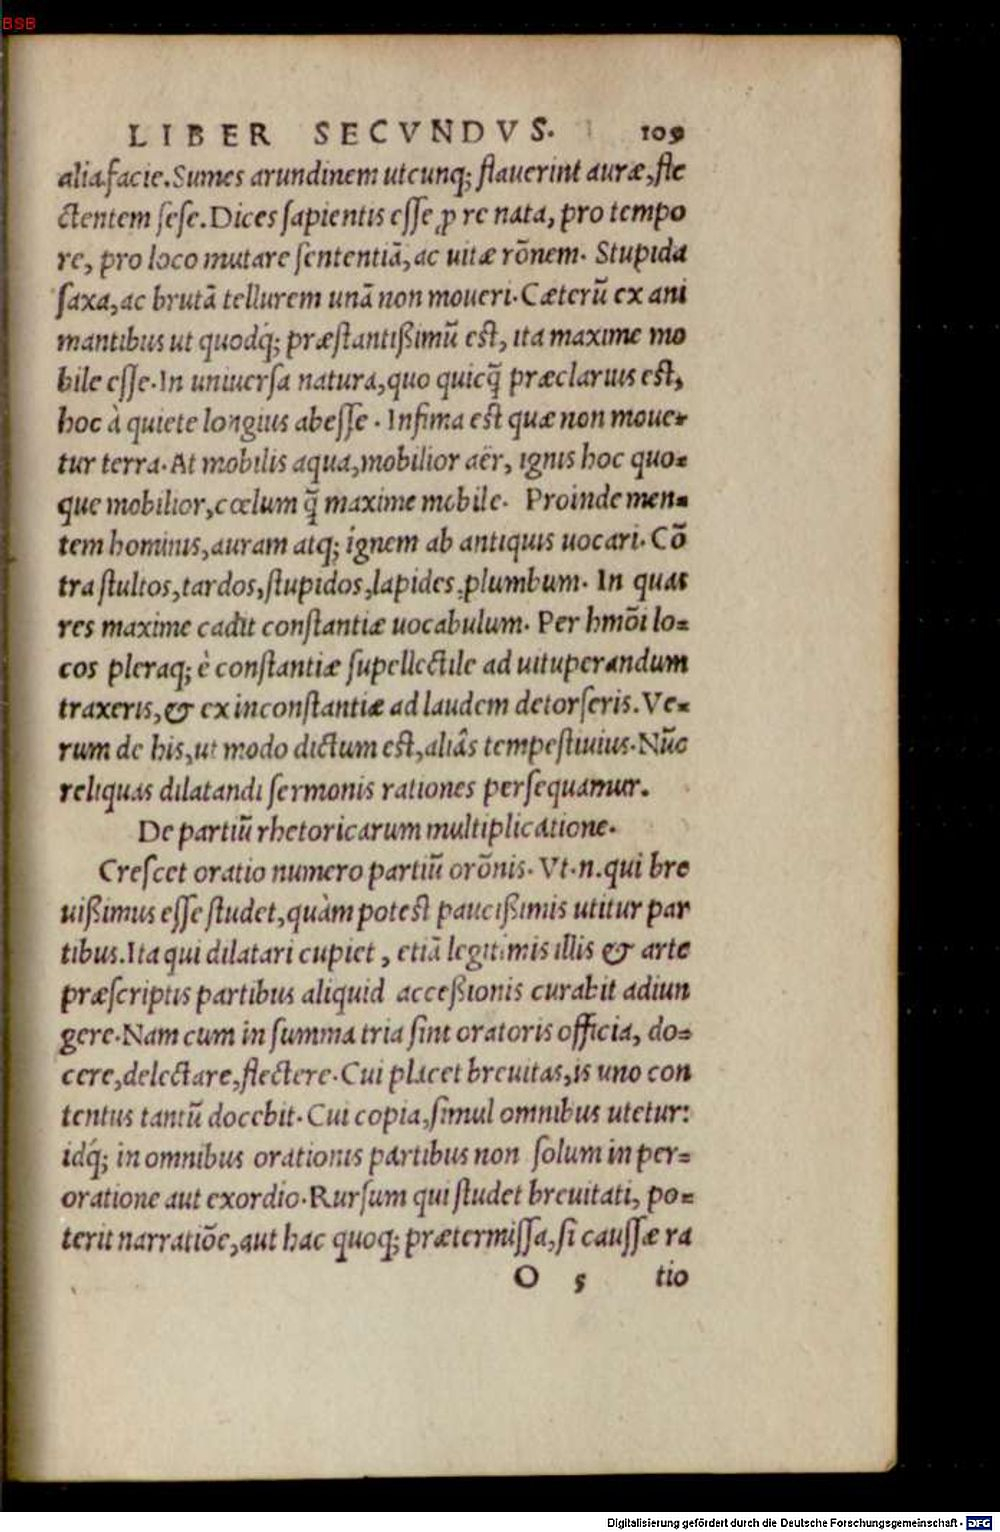 BSB
LIBER SECVNDVS. 109
alia facie. Sumes arundinem utcunq; flauerint auræ, fle
ctentem sese. Dices sapientis esse ꝓ re nata, pro tempo
re, pro loco mutare sententiā, ac uitæ rōnem. Stupida
saxa, ac brutā tellurem unā non moueri. Cæterū ex ani
mantibus ut quodq́; præstantißimū est, ita maxime mo
bile esse. In uniuersa natura, quo quicq̃ præclarius est,
hoc à quiete longius abesse. Infima est quæ non moue-
tur terra. At mobilis aqua, mobilior aër, ignis hoc quo-
que mobilior, cœlum q̃ maxime mobile. Proinde men-
tem hominis, auram atq; ignem ab antiquis uocari. Cō
tra stultos, tardos, stupidos, lapides, plumbum. In quas
res maxime cadit constantiæ uocabulum. Per hmōi lo-
cos pleraq; è constantiæ supellectile ad uituperandum
traxeris, & ex inconstantiæ ad laudem detorseris. Ve-
rum de his, ut modo dictum est, aliâs tempestiuius. Nūc
reliquas dilatandi sermonis rationes persequamur.
De partiū rhetoricarum multiplicatione.
Crescet oratio numero partiū orōnis. Vt.n. qui bre
uißimus esse studet, quàm potest paucißimis utitur par
tibus. Ita qui dilatari cupiet, etiā legitimis illis & arte
præscriptis partibus aliquid acceßionis curabit adiun
gere. Nam cum in summa tria sint oratoris officia, do-
cere, delectare, flectere. Cui placet breuitas, is uno con
tentus tantū docebit. Cui copia, simul omnibus utetur:
idq́; in omnibus orationis partibus non solum in per-
oratione aut exordio. Rursum qui studet breuitati, po-
terit narratiōe, aut hac quoq; prætermissa, si caussæ ra
O 5 tio
Digitalisierung gefördert durch die Deutsche Forschungsgemeinschaft - DFG